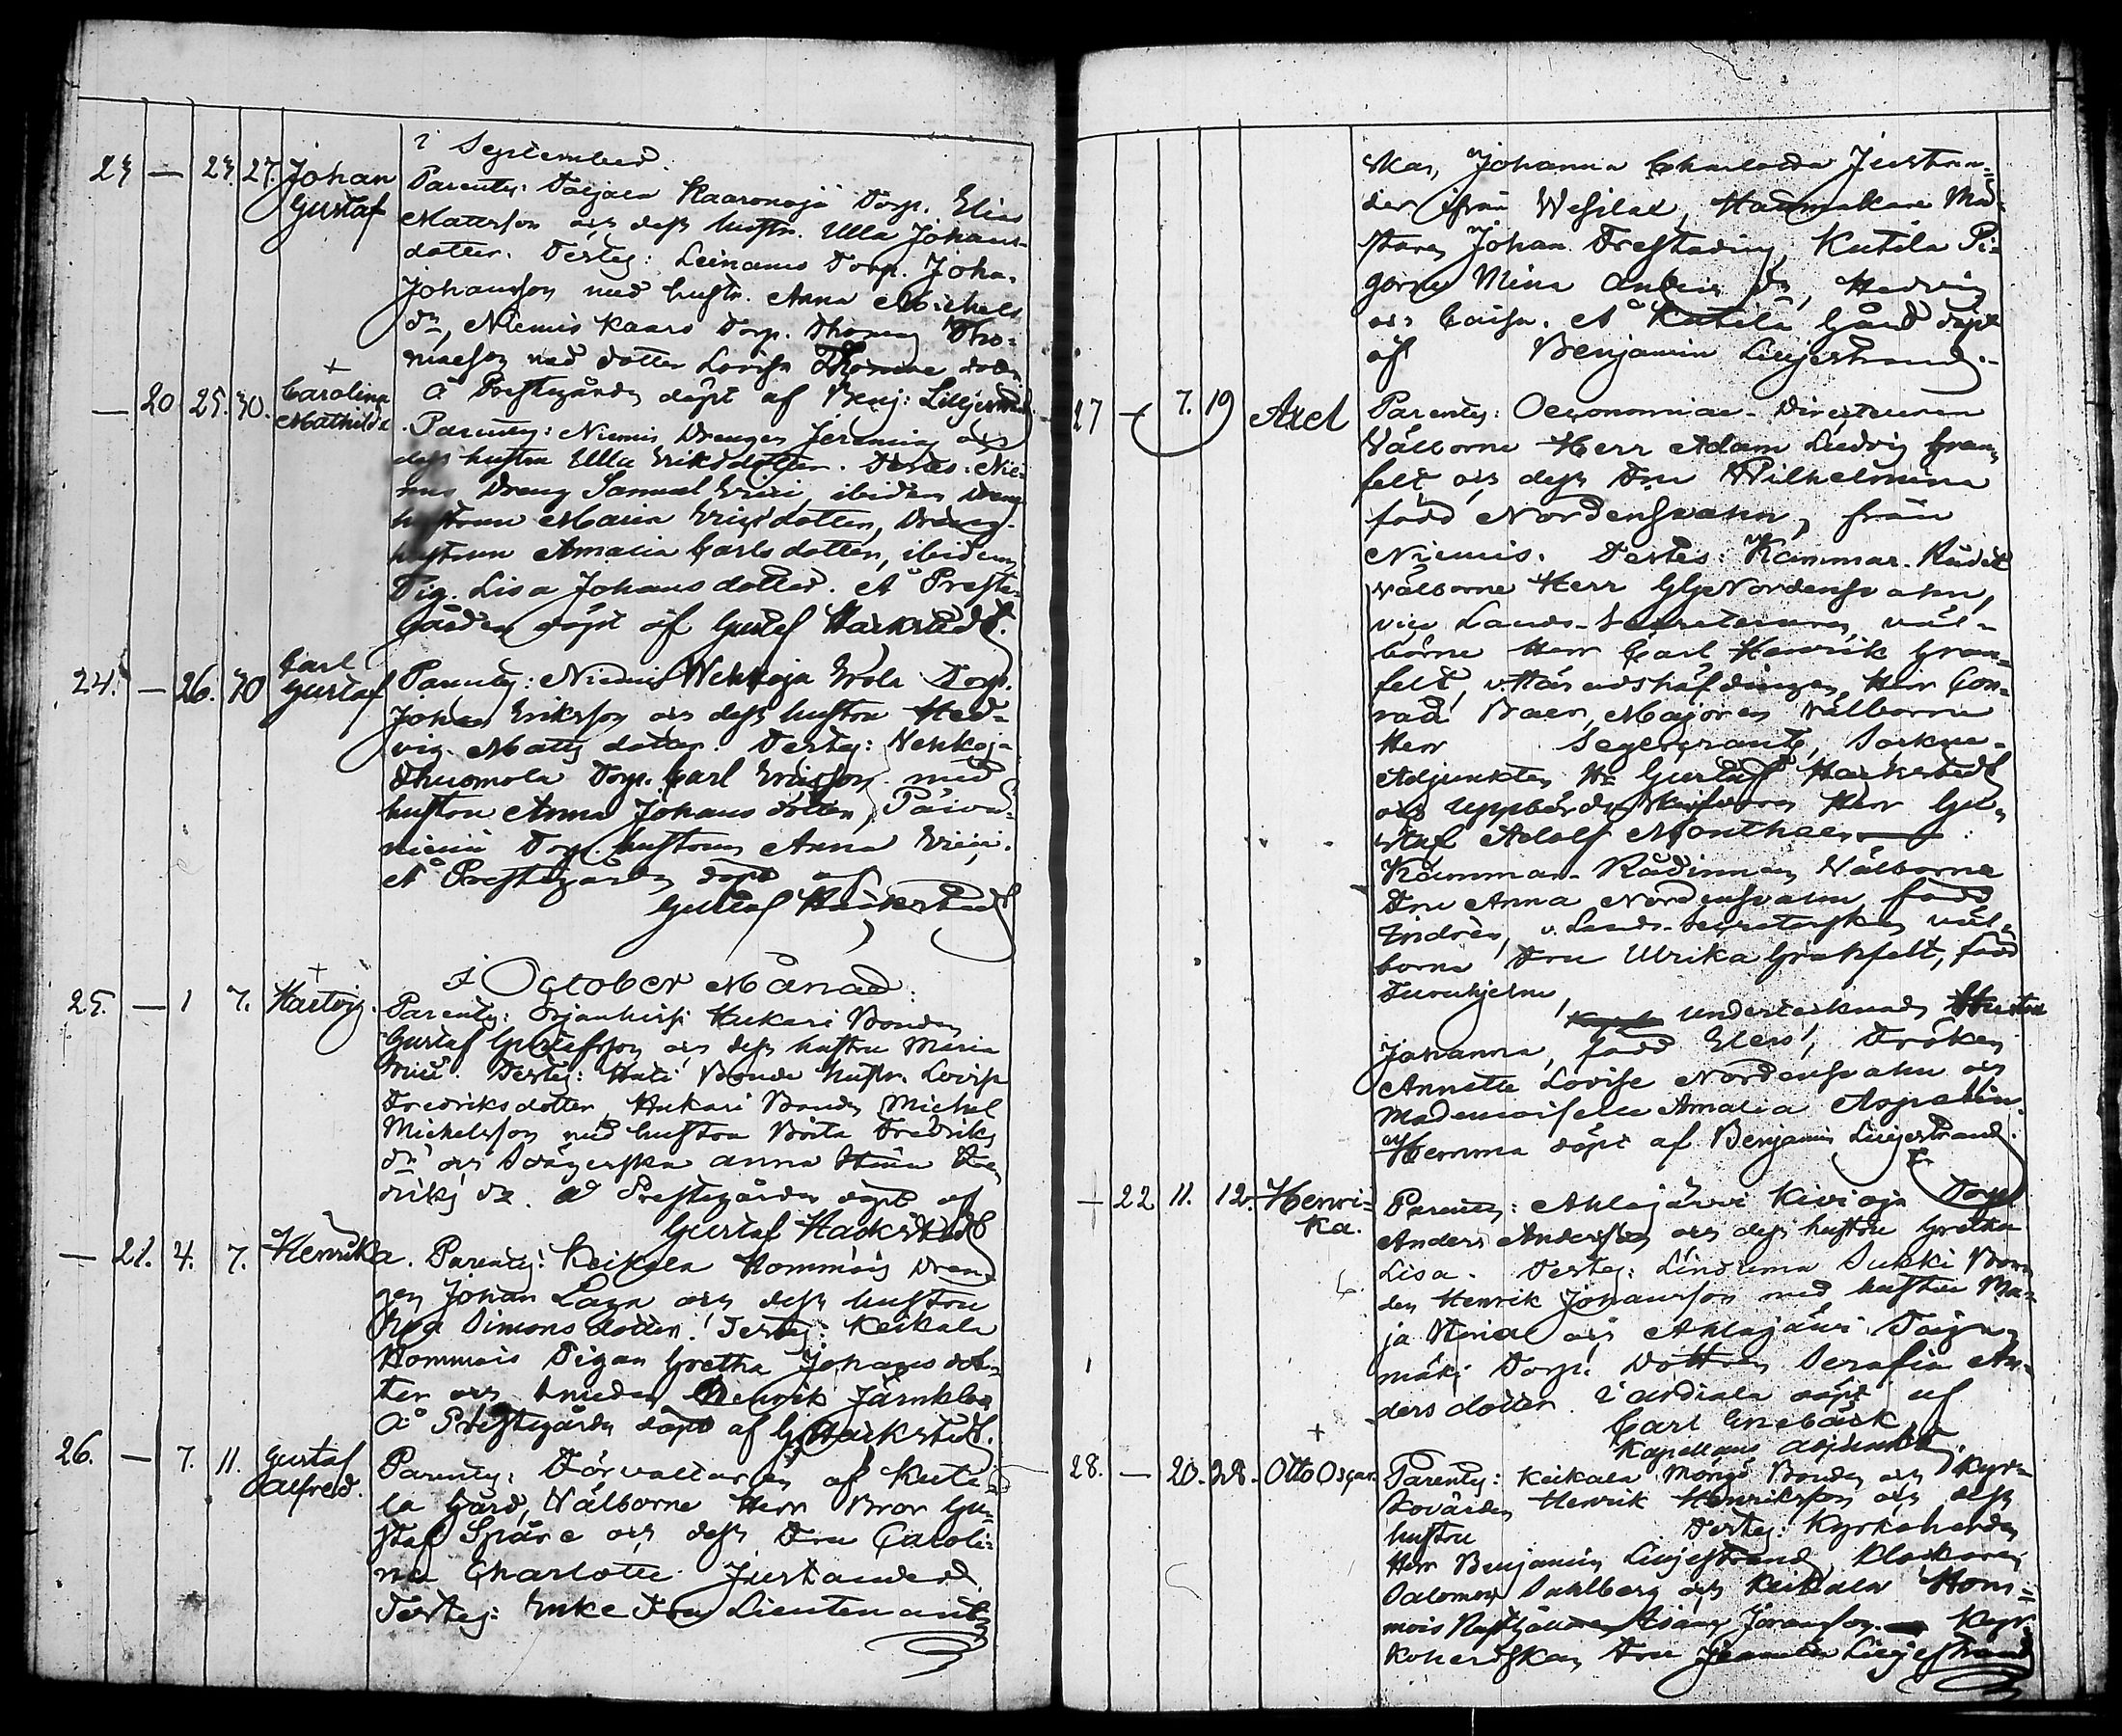 i September.
23 — 23. 27. Johan Gustaf
Parentes: Torp. Elias
Mattsson och dess hustr. Ulla Johans
dotter. Testes: Leinamo Torp. Johan
Johansson med hustr. Anna Michels
dr, Niemis Kaaro Torp. Thomas Tho=
masson med dotter Lovisa
å Prestegården döpt af Benj: Liljestrand
— 20 25. 30. Carolina Mathilda
Parentes: Niemis Drengen Jeremias och
dess hustru Ulla Eriksdotter. Testes: Nie=
mis Dreng Samuel Erici, ibidem Dreng
hustrun Maria Ericsdotter, Dreng-
hustrun Amalia Carlsdotter, ibidem
Pig. Lisa Johansdotter. Å Preste=
gården döpt af Gustaf Hackstedt.
24. — 26. 30 Carl Gustaf
Parentes: Niemis Torp.
Johan Eriksson och dess hustru Hed=
vig Matts dotter. Testes:
Torp. Carl Ericsson med
hustru Anna Johans dotter,
niemi Torp. hustrun Anna Erici.
Å Prestegården döpt af
Gustaf Hackstedt
I October Månad:
25. — 1 7. Hartvig.
Parentes: Hukari Bonden
Gustaf Gustafsson och dess hustru Maria
Testes: Bonde hustr. Lovisa
Fredriksdotter, Hukari Bonden Michel
Michelsson med hustru Brita Fredriks
dr och Svägerska Anna Stina Fre=
driks dr. Å Prestegården döpt af
Gustaf Hackstedt
— 21. 4. 7. Henrika.
Parentes: Keikala Hommois Dren=
gen Johan och dess hustru
Eva Simonsdotter. Testes: Keikala
Hommois Pigan Gretha Johansdot=
ter och Smeden Henrik
å Prestegården döpt af G. Hackstedt.
26. — 7. 11. Gustaf Alfred.
Parentes: Förvaltaren af Kuti=
la Gård, Välborne Herr Bror Gu=
staf Spåre och dess Fru Caroli=
na Charlotte Justander.
Testes: Enke Fru Lieutenants
skan, Johanna Charlotta Justan=
der ifrån Wesilax, Må=
staren Johan Kutila Pi=
gorne Mina dr, Hedvig
och Caisa. Å Kutila Gård döpt
af Benjamin Liljestrand.
27 — 7. 19 Axel
Parentes: Oeconomiae-Directeuren
Välborne Herr Adam Ludvig Gran=
felt och dess Fru Wilhelmina
född Nordensvahn, från
Niemis. Testes: Kammar-Rådet
välborne Herr Nordensvahn,
vice Lands-Secreteraren, väl=
borne Herr Carl Henrik Gran=
felt, v. Häradshöfdingen, Herr Con=
rad Baer, Majoren Välborne
Herr Segercrantz, Sockne-
Adjunkten Hr Gustaf Hackstedt
och Uppbörds Skrifvaren Herr Gu=
staf Adolf
Kammar-Rådinnan, Välborna
Fru Anna Nordensvahn född
v. Lands-Secreterskan väl=
borna Fru Ulrika Granfelt, född
Furuhjelm,
undertecknads Hustru
Johanna, född Elers, Fröken
Annette Lovise Nordensvahn och
Mademoiselle Amalia Aspelin.
Hemma döpt af Benjamin Liljestrand.
— 22 11. 12. Henri= ka.
Parentes: Ahlajärvi Kivioja Torp.
Anders Andersson och dess hustru Gretha
Lisa. Testes: Lindema Sukki Bon=
den Henrik Johansson med hustru Ma=
ja och Ahlajärvi
mäki Torp. Dottren Serafia An=
ders dotter. i Urdiala döpt af
Carl Enebäck
Kapellans Adjunkt.
28. — 20. 28. Otto Oscar.
Parentes: Keikala Bonden och Kyr=
kovärden Henrik Henriksson och dess
hustru Testes: Kyrkoherden
Herr Benjamin Liljestrand, Klockaren
Salomon Dahlberg och Keikala Hom=
mois Jöransson. Kyr=
koherdskan Fru Liljestrand